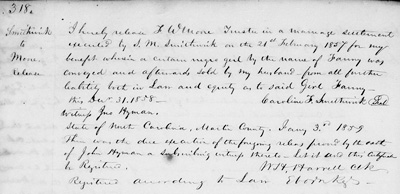 318.
Smithwick
to
Moore
release
I hereby release F W Moore Trustee in a marriage settlement
executed by S. M. Smithwick on the 21st February 1857 for my
benefit wherein a certain negro girl by the name of Fanny was
conveyed and afterwards sold by my husband from all further
liability both in Law and equity as to said Girl Fanny
this Dec 31. 1858 — Caroline F. Smithwick
Witness Jno Hyman.
State of North Carolina, Martin County. Jany 3rd 1859
Then was the due execution of the foregoing release proved by the oath
of John Hyman a subscribing witness thereto — Let it and this certificate
be Registered. W H Harrell Clk
Registered according to Law